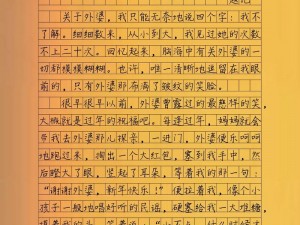 关于外婆，我只能无奈地说四个字：我不
了解。细细数来，从小到大，我见过她的次数
不上二十次。回忆起来，脑海中有关外婆的一
切都模模糊糊。也许，唯一清晰地逗留在我眼
前的，只有外婆那布满了皱纹的笑脸。
很早很早以前，外婆曾露过的最慈祥的笑，
大概就是过年的祝福吧。每逢过年，妈妈就会
带我去外婆那儿探亲，一进门，外婆便乐呵呵
地跑过来，掏出一个大红包，塞到我手中，然
后瞪大了眼，竖起了耳朵，等着我的那一句：
“谢谢外婆，新年快乐！”便拉着我，像个小
孩子一般地唱好听的民谣，硬塞给我一大堆糖，
摸着我的头，笑着说